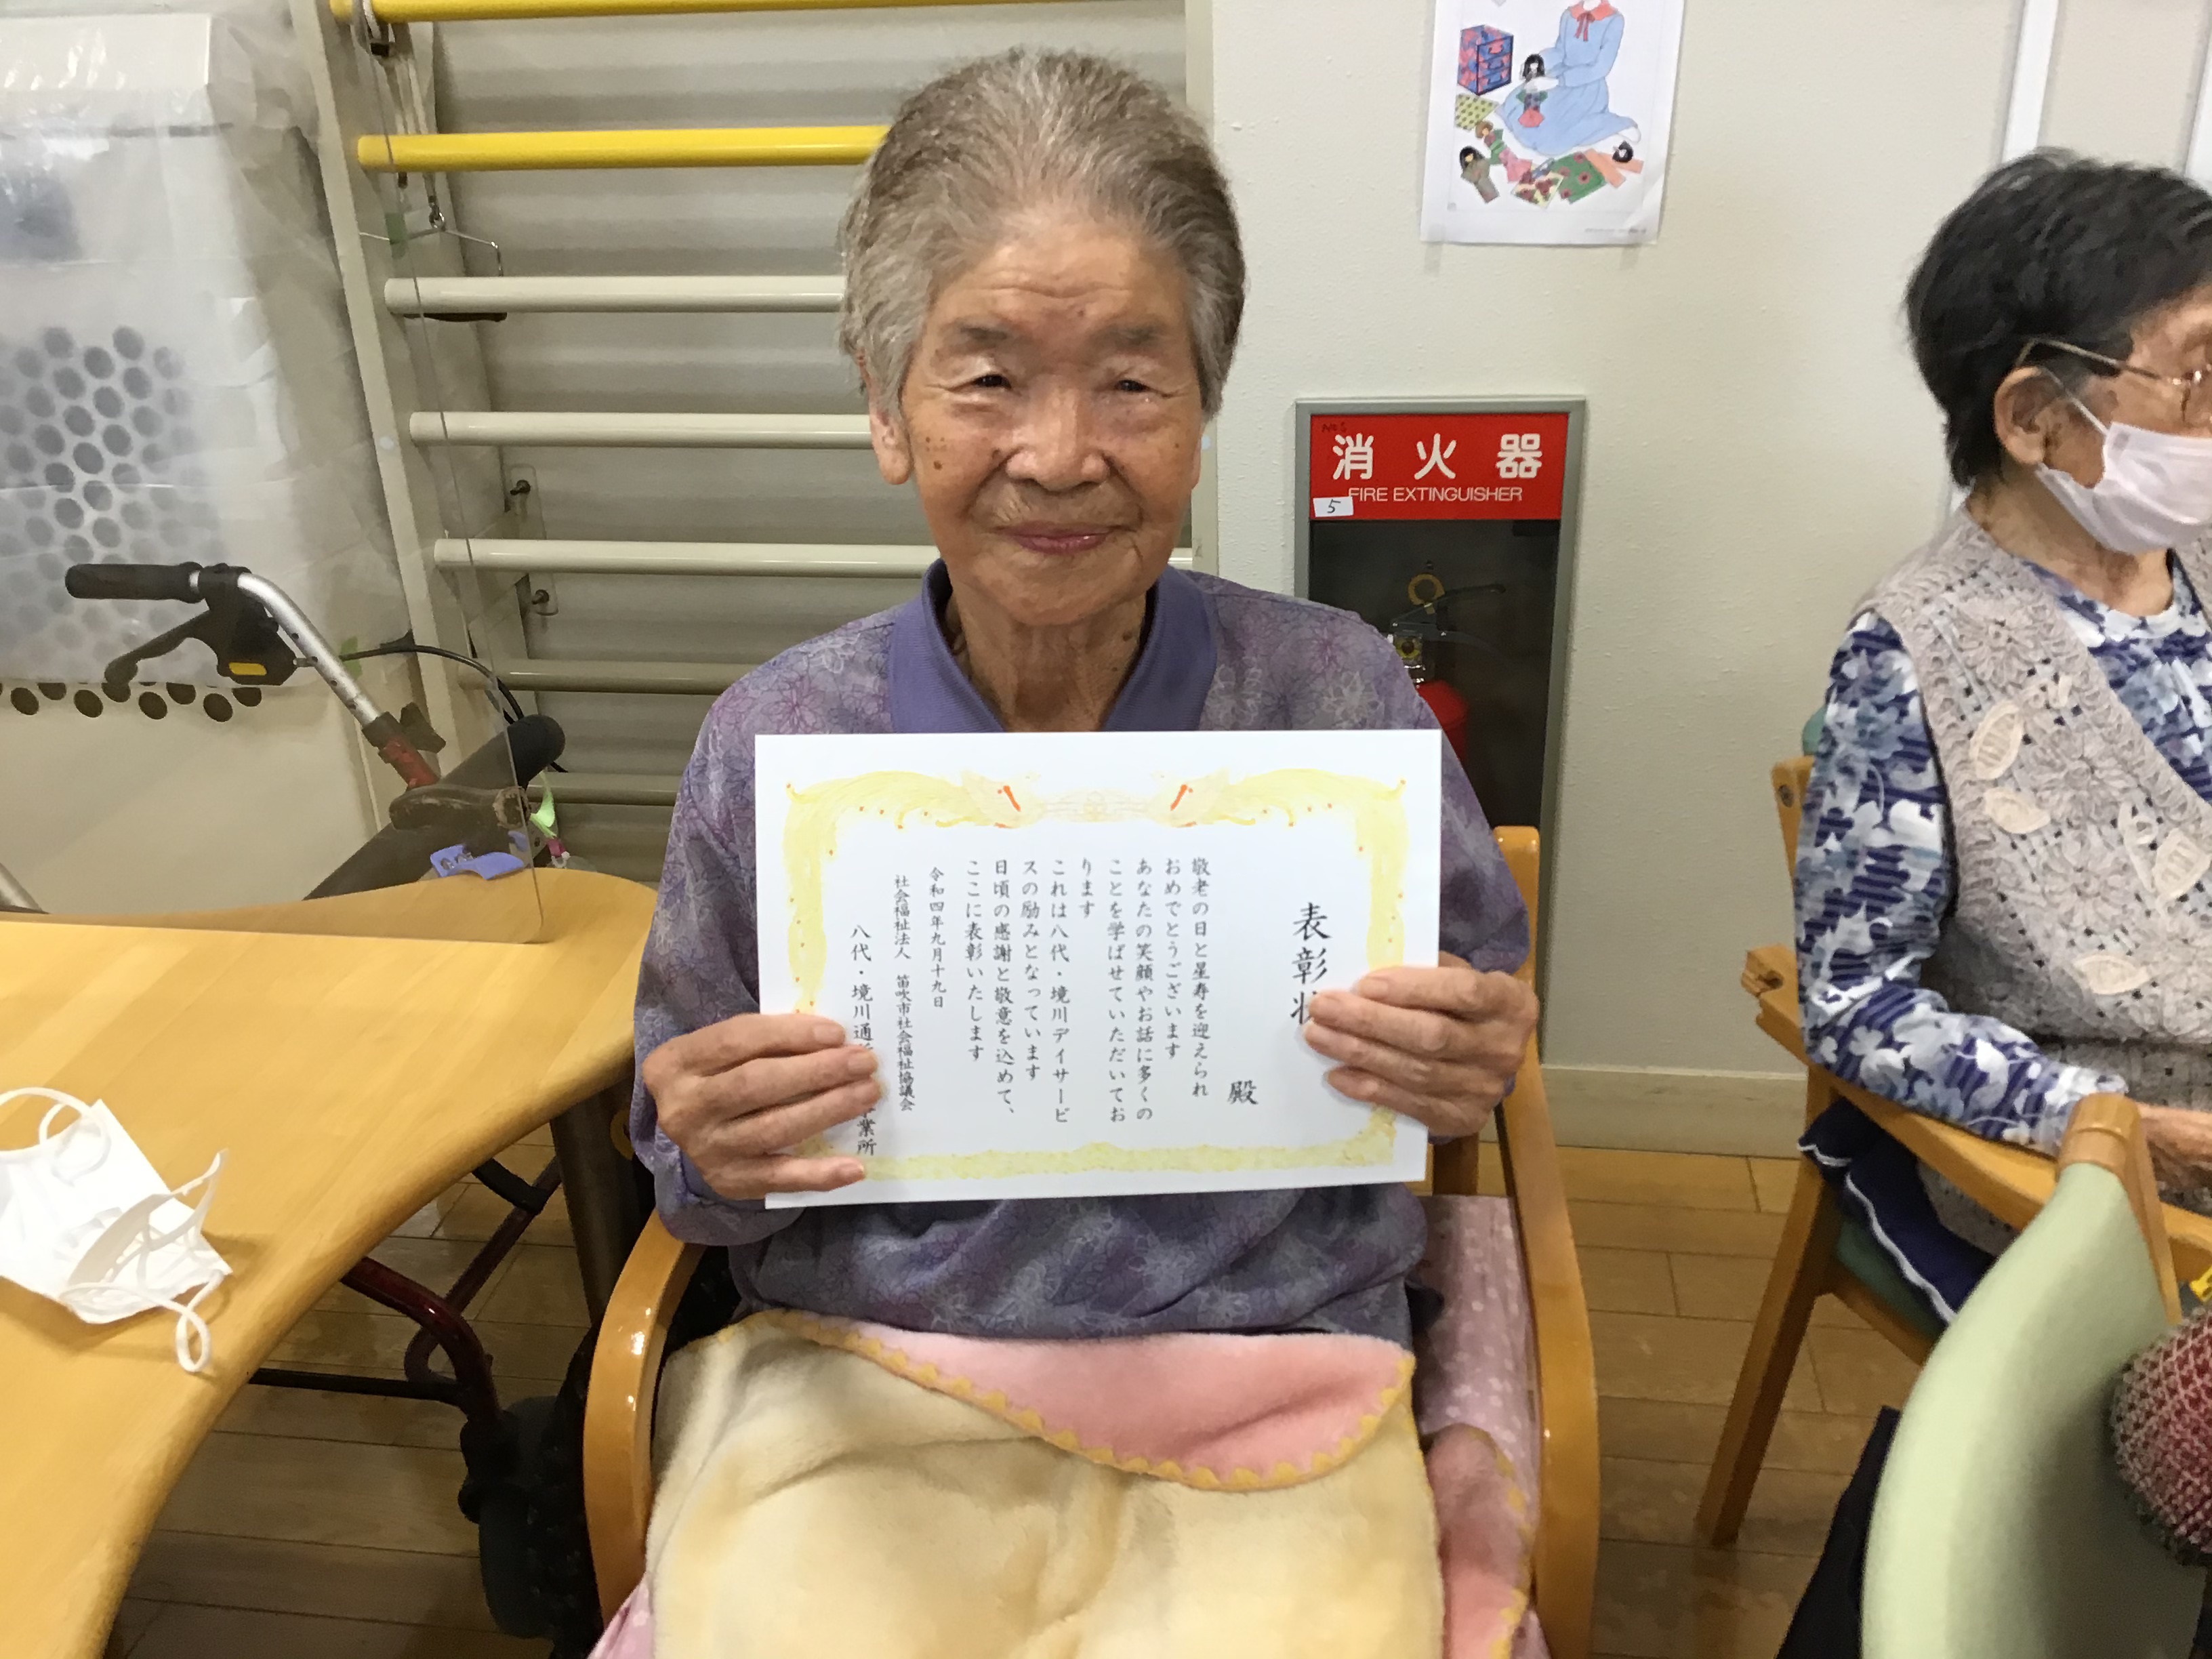 消火器
FIRE EXTINGUISHER
5
表彰状
殿
敬老の日と星寿を迎えられ
おめでとうございます
あなたの笑顔やお話に多くの
ことを学ばせていただいてお
ります
これは八代・境川デイサービ
スの励みとなっています
日頃の感謝と敬意を込めて、
ここに表彰いたします
令和四年九月十九日
社会福祉法人 笛吹市社会福祉協議会
八代・境川通 業所